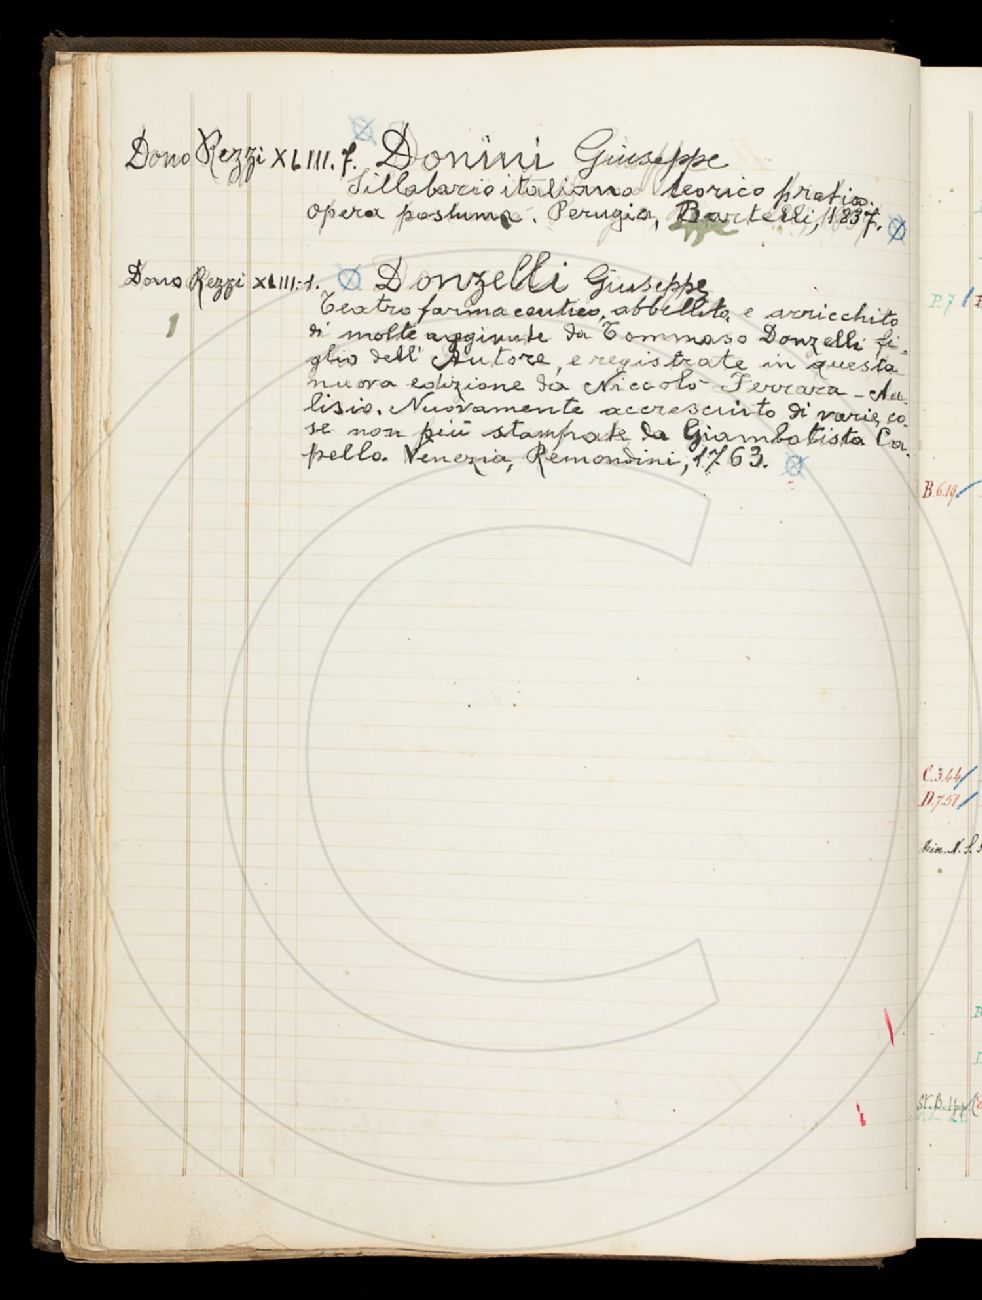 Dono Rezzi XLIII. 7. Donini Giuseppe
Sillabario italiano teorico pratico.
opera postuma. Perugia, Bartelli, 1837.
Dono Rezzi XLIII-1. Donzelli Giuseppe
Teatro farmaceutico, abbellito e arricchito
1
di molte aggiunte da Tommaso Donzelli fi-
glio dell' Autore, e registrate in questa
nuova edizione da Niccolò Ferrara - Au-
lisio. Nuovamente accresciuto di varie co-
se non più stampate da Giambatista Ca-
pello. Venezia, Remondini, 1763.
P.7
B.6.19
C.3.44
D.7.51